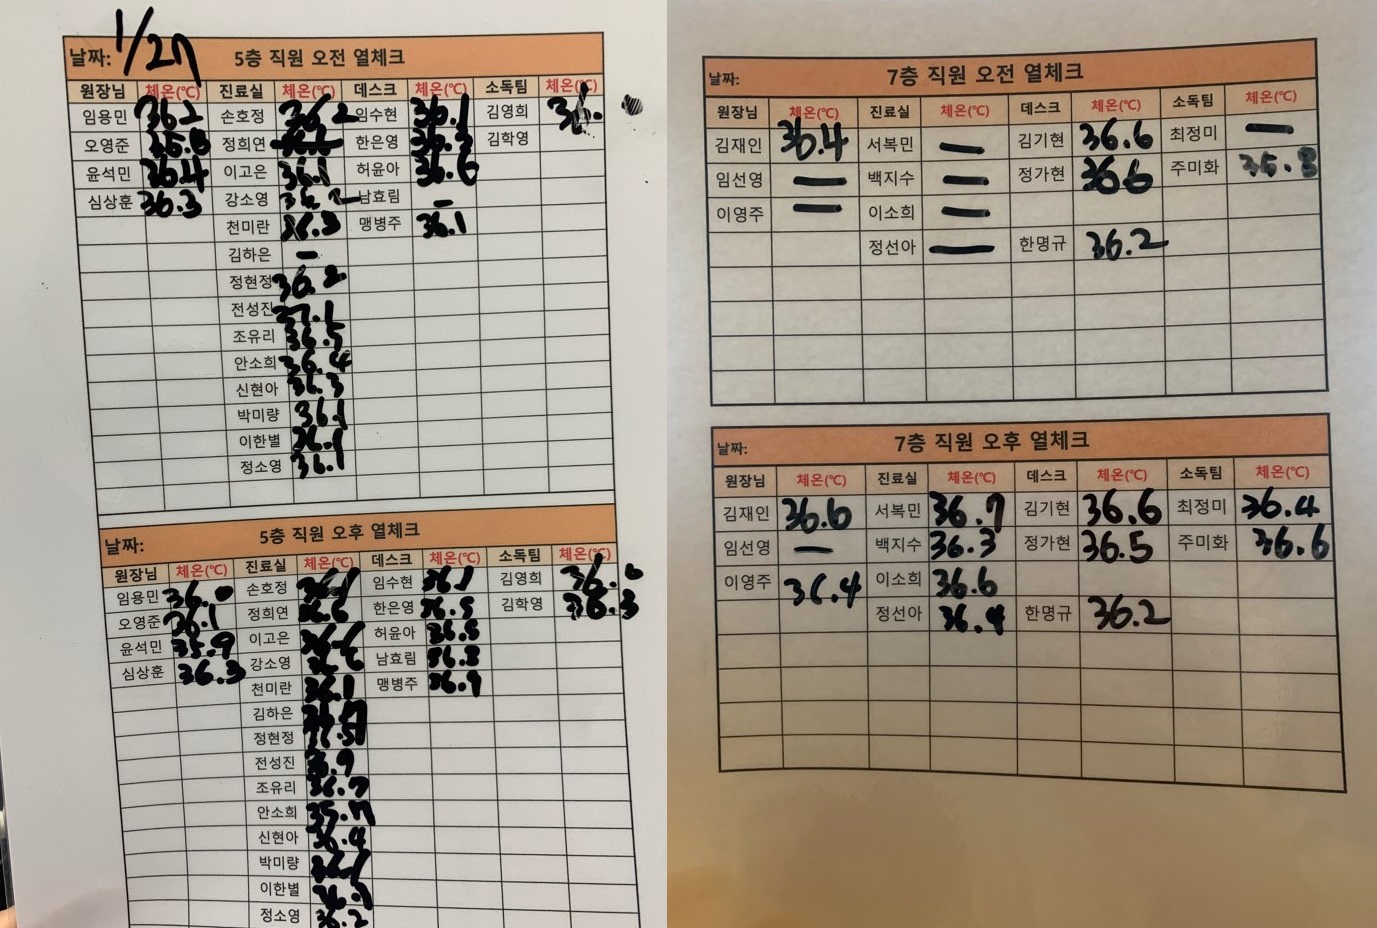 날짜: 1/27 5층 직원 오전 열체크
원장님 체온(℃) 진료실 체온(℃) 데스크 체온(℃) 소독팀 체온(℃)
임용민 36.2 손호정 36.2 임수현 36.1 김영희
오영준 정희연 한은영 36.5 김학영
윤석민 36.4 이고은 36.1 허윤아 36.6
심상훈 36.3 강소영 남효림 -
천미란 맹병주 36.1
김하은 -
정현정 36.2
전성진 37.1
조유리 36.5
안소희 36.4
신현아 36.3
박미량 36.1
이한별 36.1
정소영 36.1
날짜: 5층 직원 오후 열체크
원장님 체온(℃) 진료실 체온(℃) 데스크 체온(℃) 소독팀 체온(℃)
임용민 36.0 손호정 임수현 36.1 김영희 36.6
오영준 36.1 정희연 36.6 한은영 36.5 김학영 36.3
윤석민 35.9 이고은 허윤아 36.5
심상훈 36.3 강소영 남효림 36.8
천미란 36.1 맹병주
김하은
정현정
전성진 36.9
조유리 36.7
안소희 35.7
신현아 36.4
박미량
이한별
정소영 36.2
날짜: 7층 직원 오전 열체크
원장님 체온(℃) 진료실 체온(℃) 데스크 체온(℃) 소독팀 체온(℃)
김재인 36.4 서복민 - 김기현 36.6 최정미 -
임선영 - 백지수 - 정가현 36.6 주미화 35.8
이영주 - 이소희 -
정선아 - 한명규 36.2
날짜: 7층 직원 오후 열체크
원장님 체온(℃) 진료실 체온(℃) 데스크 체온(℃) 소독팀 체온(℃)
김재인 36.6 서복민 36.7 김기현 36.6 최정미 36.4
임선영 - 백지수 36.3 정가현 36.5 주미화 36.6
이영주 36.4 이소희 36.6
정선아 36.4 한명규 36.2